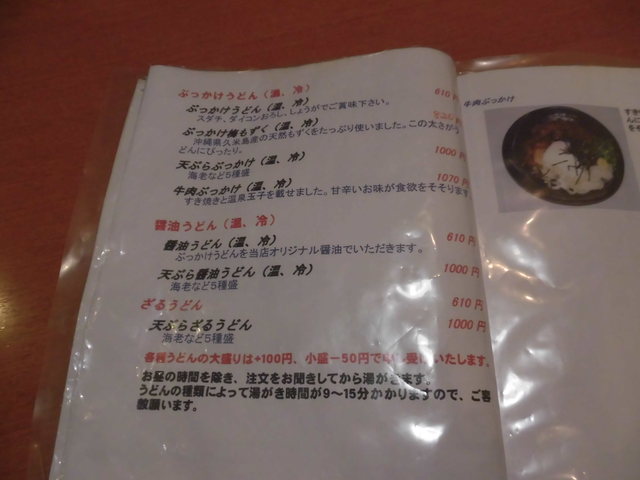 ぶっかけうどん（温、冷）
ぶっかけうどん（温、冷） 610円
スダチ、ダイコンおろし、しょうがでご賞味下さい。
ぶっかけ太もずく（温、冷）
沖縄県久米島産の天然もずくをたっぷり使いました。この太さが
どんにぴったり。
天ぷらぶっかけ（温、冷） 1000円
海老など5種盛
牛肉ぶっかけ（温、冷） 1070円
すき焼きと温泉玉子を載せました。甘辛いお味が食欲をそそります
醤油うどん（温、冷）
醤油うどん（温、冷） 610円
ぶっかけうどんを当店オリジナル醤油でいただきます。
天ぷら醤油うどん（温、冷） 1000円
海老など5種盛
ざるうどん 610円
天ぷらざるうどん 1000円
海老など5種盛
各種うどんの大盛りは+100円、小盛－50円で申し受けいたします。
お昼の時間を除き、注文をお聞きしてから湯がきます。
うどんの種類によって湯がき時間が9～15分かかりますので、ご容
赦願います。
牛肉ぶっかけ